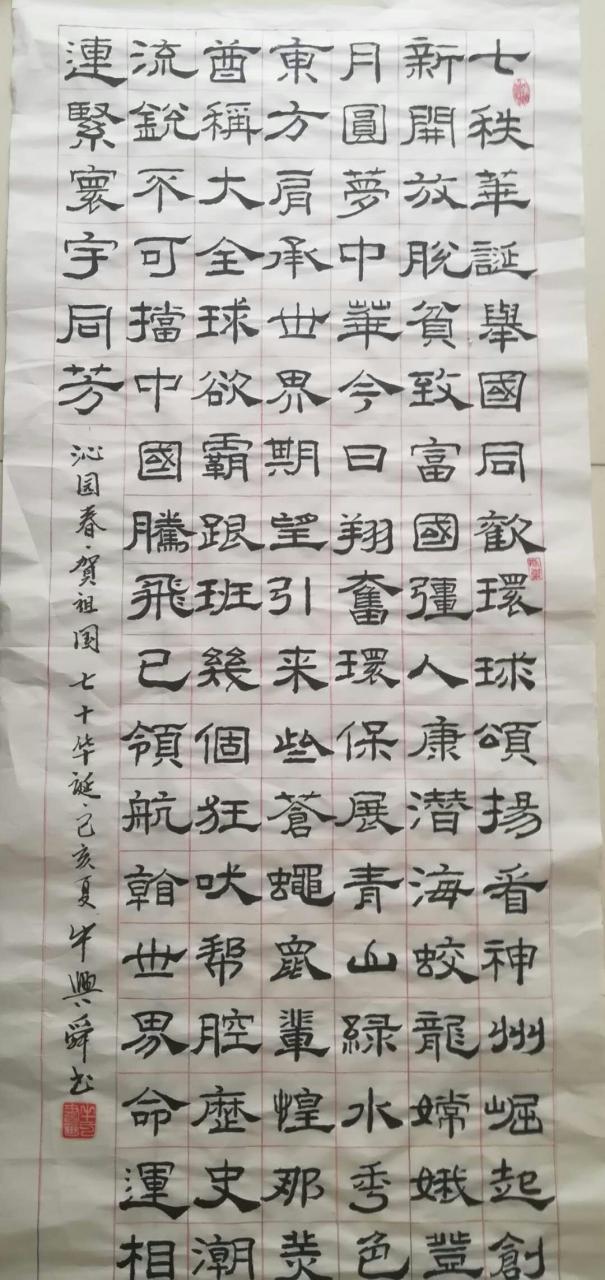 七秩華誕舉國同歡環球頌揚看神州崛起創
新開放脫貧致富國彊人康潛海蛟龍嫦娥登
月圓夢中華今日翔奮環保展青山綠水秀色
東方肩承世界期望引来些蒼蠅鼠輩惶那美
酋稱大全球欲霸跟班幾個狂吠帮腔歷史潮
流銳不可擋中國騰飛已領航翰世界命運相
連緊寰宇同芳
沁园春·賀祖国七十华誕·己亥夏牛興舜书